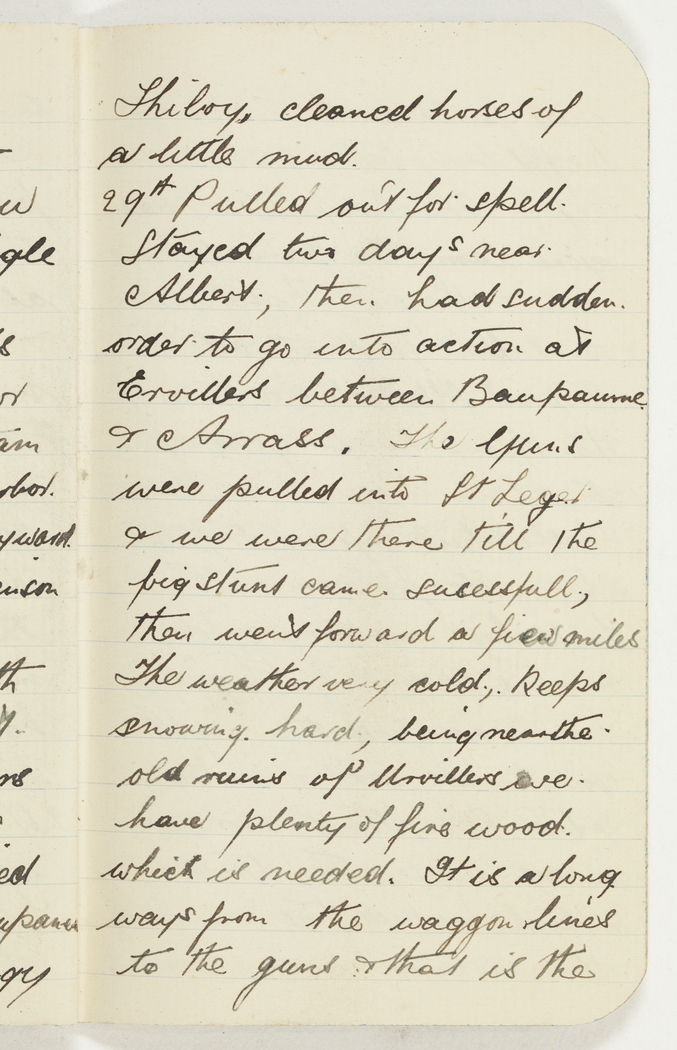 Thiloy, cleaned horses of
a little mud.
29th Pulled out for spell.
Stayed two days near
Albert, then had sudden
order to go into action at
Ervillers between Baupaume
& Arrass. The Guns
were pulled into St Leger
& we were there till the
big stunt came sucessfull,
then went forward a few miles
The weather very cold, keeps
snowing hard, being near the
old ruins of Urvillers we
have plenty of fire wood.
which is needed. It is a long
ways from the waggon lines
to the guns & that is the